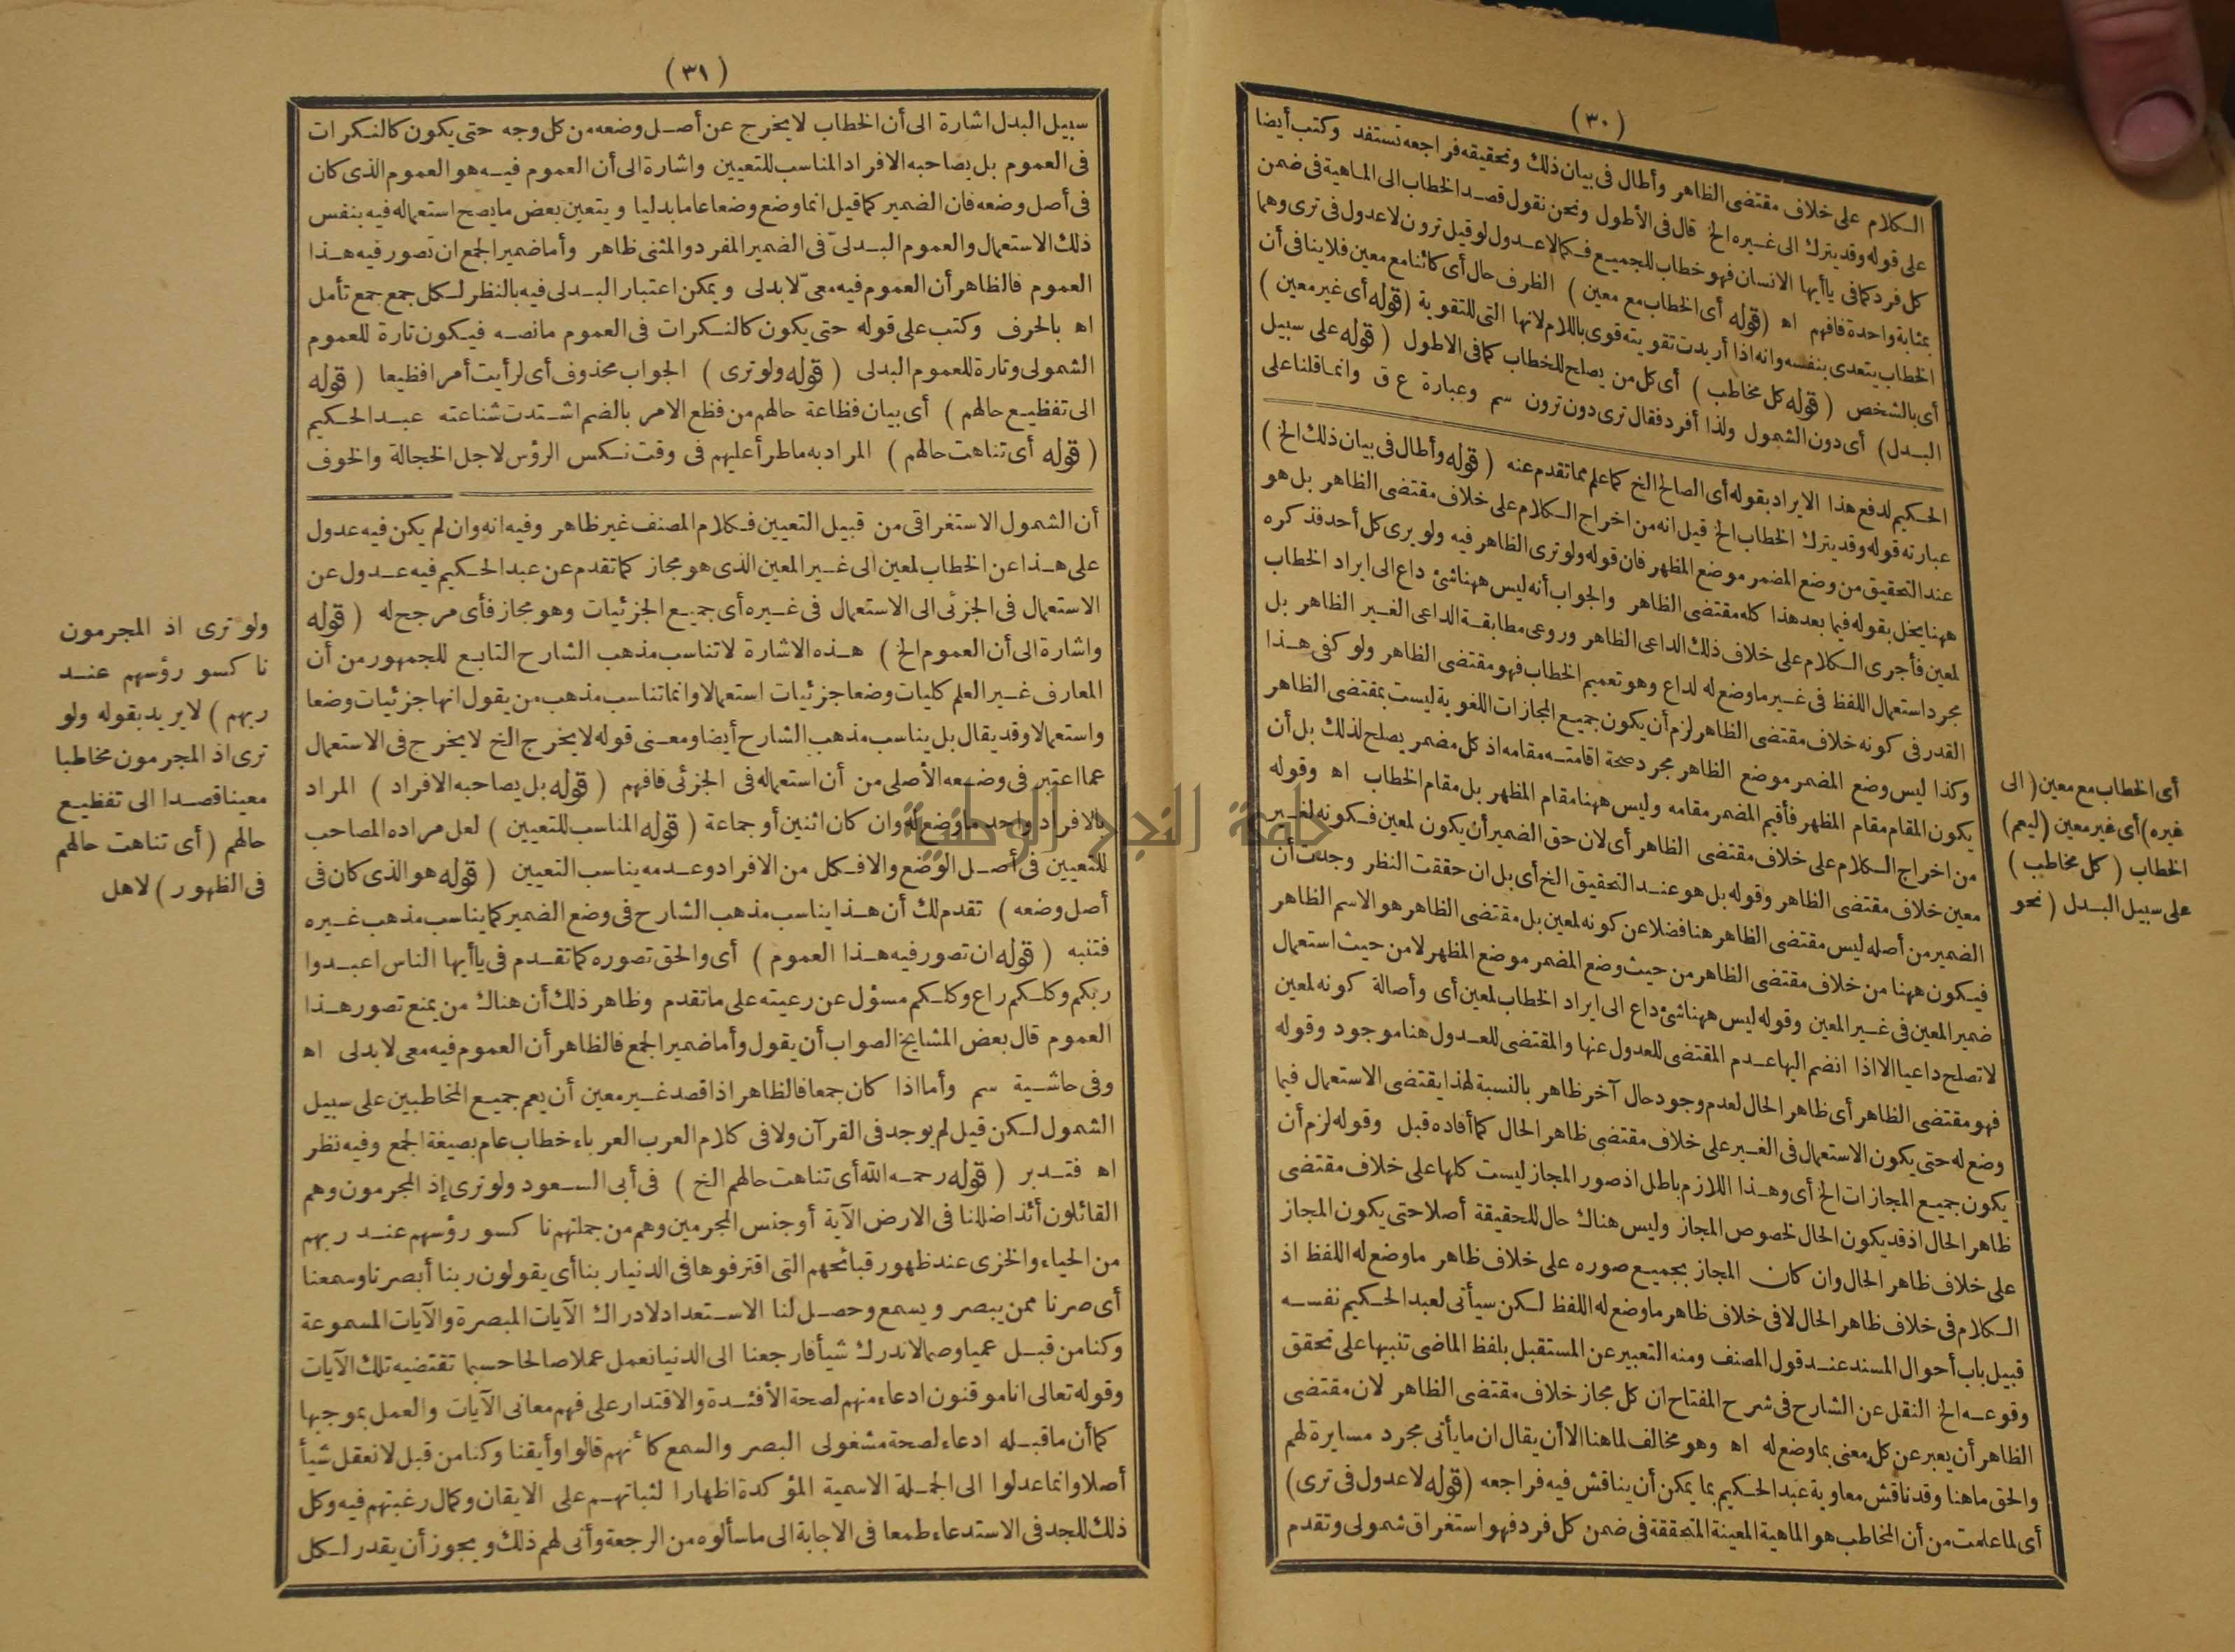 (٣٠)
الكلام على خلاف مقتضى الظاهر وأطال فى بيان ذلك وتحقيقه فراجعه تستفد وكتب أيضا
على قوله وقد يترك الى غيره الخ قال فى الأطول ونحن نقول قصد الخطاب الى الماهية فى ضمن
كل فرد كما فى ياأيها الانسان فهو خطاب للجميع فكما لا عدول لو قيل ترون لا عدول فى ترى وهما
بمثابة واحدة فافهم اه (قوله أى الخطاب مع معين) الظرف حال أى كائنا مع معين فلا ينافى أن
الخطاب يتعدى بنفسه وانه اذا أريدت تقويته قوى باللام لانها التى للتقوية (قوله أى غير معين)
أى بالشخص (قوله كل مخاطب) أى كل من يصلح للخطاب كما فى الاطول (قوله على سبيل
البدل) أى دون الشمول ولذا أفرد فقال ترى دون ترون سم وعبارة ع ق وانما قلنا على
الحكيم لدفع هذا الايراد بقوله أى الصالح الخ كما علم مما تقدم عنه (قوله وأطال فى بيان ذلك الخ)
عبارته قوله وقد يترك الخطاب الخ قيل انه من اخراج الكلام على خلاف مقتضى الظاهر بل هو
عند التحقيق من وضع المضمر موضع المظهر فان قوله ولو ترى الظاهر فيه ولو يرى كل أحد فذكره
ههنا يخل بقوله فيما بعد هذا كله مقتضى الظاهر والجواب أنه ليس ههنا شئ داع الى ايراد الخطاب
لمعين فأجرى الكلام على خلاف ذلك الداعى الظاهر وروعى مطابقة الداعى الغير الظاهر بل
مجرد استعمال اللفظ فى غير ما وضع له لداع وهو تعميم الخطاب فهو مقتضى الظاهر ولو كفى هذا
القدر فى كونه خلاف مقتضى الظاهر لزم أن يكون جميع المجازات اللغوية ليست بمقتضى الظاهر
وكذا ليس وضع المضمر موضع الظاهر مجرد صحة اقامته مقامه اذ كل مضمر يصلح لذلك بل أن
يكون المقام مقام المظهر فأقيم المضمر مقامه وليس ههنا مقام المظهر بل مقام الخطاب اه وقوله
من اخراج الكلام على خلاف مقتضى الظاهر أى لان حق الضمير أن يكون لمعين فكونه لغير
معين خلاف مقتضى الظاهر وقوله بل هو عند التحقيق الخ أى بل ان حققت النظر وجدت أن
الضمير من أصله ليس مقتضى الظاهر هنا فضلا عن كونه لمعين بل مقتضى الظاهر هو الاسم الظاهر
فيكون ههنا من خلاف مقتضى الظاهر من حيث وضع المضمر موضع المظهر لا من حيث استعمال
ضمير المعين فى غير المعين وقوله ليس ههنا شئ داع الى ايراد الخطاب لمعين أى وأصالة كونه لمعين
لا تصلح داعيا الا اذا انضم اليها عدم المقتضى للعدول عنها والمقتضى للعدول هنا موجود وقوله
فهو مقتضى الظاهر أى ظاهر الحال لعدم وجود حال آخر ظاهر بالنسبة لهذا يقتضى الاستعمال فيما
وضع له حتى يكون الاستعمال فى الغير على خلاف مقتضى ظاهر الحال كما أفاده قبل وقوله لزم أن
يكون جميع المجازات الخ أى وهذا اللازم باطل اذ صور المجاز ليست كلها على خلاف مقتضى
ظاهر الحال اذ قد يكون الحال لخصوص المجاز وليس هناك حال للحقيقة أصلا حتى يكون المجاز
على خلاف ظاهر الحال وان كان المجاز بجميع صوره على خلاف ظاهر ما وضع له اللفظ اذ
الكلام فى خلاف ظاهر الحال لا فى خلاف ظاهر ما وضع له اللفظ لكن سيأتى لعبد الحكيم نفسه
قبيل باب أحوال المسند عند قول المصنف ومنه التعبير عن المستقبل بلفظ الماضى تنبيها على تحقق
وقوعه الخ النقل عن الشارح فى شرح المفتاح ان كل مجاز خلاف مقتضى الظاهر لان مقتضى
الظاهر أن يعبر عن كل معنى بما وضع له اه وهو مخالف لما هنا الا أن يقال ان ما يأتى مجرد مسايرة لهم
والحق ما هنا وقد ناقش معاوية عبد الحكيم بما يمكن أن يناقش فيه فراجعه (قوله لا عدول فى ترى)
أى لما علمت من أن المخاطب هو الماهية المعينة المتحققة فى ضمن كل فرد فهو استغراق شمولى وتقدم
أى الخطاب مع معين (الى
غيره) أى غير معين (ليعم)
الخطاب (كل مخاطب)
على سبيل البدل (نحو
(٣١)
سبيل البدل اشارة الى أن الخطاب لا يخرج عن أصل وضعه من كل وجه حتى يكون كالنكرات
فى العموم بل يصاحبه الافراد المناسب للتعيين واشارة الى أن العموم فيه هو العموم الذى كان
فى أصل وضعه فان الضمير كما قيل انما وضع وضعا عاما بدليا ويتعين بعض ما يصح استعماله فيه بنفس
ذلك الاستعمال والعموم البدلىّ فى الضمير المفرد والمثنى ظاهر وأما ضمير الجمع ان تصور فيه هذا
العموم فالظاهر أن العموم فيه معىّ لا بدلى ويمكن اعتبار البدلى فيه بالنظر لكل جمع جمع تأمل
اه بالحرف وكتب على قوله حتى يكون كالنكرات فى العموم مانصه فيكون تارة للعموم
الشمولى وتارة للعموم البدلى (قوله ولو ترى) الجواب محذوف أى لرأيت أمرا فظيعا (قوله
الى تفظيع حالهم) أى بيان فظاعة حالهم من فظع الامر بالضم اشتدت شناعته عبد الحكيم
(قوله أى تناهت حالهم) المراد به ما طرأ عليهم فى وقت نكس الرؤس لاجل الخجالة والخوف
أن الشمول الاستغراقى من قبيل التعيين فكلام المصنف غير ظاهر وفيه انه وان لم يكن فيه عدول
على هذا عن الخطاب لمعين الى غير المعين الذى هو مجاز كما تقدم عن عبد الحكيم فيه عدول عن
الاستعمال فى الجزئى الى الاستعمال فى غيره أى جميع الجزئيات وهو مجاز فأى مرجح له (قوله
واشارة الى أن العموم الخ) هذه الاشارة لا تناسب مذهب الشارح التابع للجمهور من أن
المعارف غير العلم كليات وضعا جزئيات استعمالا وانما تناسب مذهب من يقول انها جزئيات وضعا
واستعمالا وقد يقال بل يناسب مذهب الشارح أيضا ومعنى قوله لا يخرج الخ لا يخرج فى الاستعمال
عما اعتبر فى وضعه الأصلى من أن استعماله فى الجزئى فافهم (قوله بل يصاحبه الافراد) المراد
بالافراد واحد ما وضع له وان كان اثنين أو جماعة (قوله المناسب للتعيين) لعل مراده المصاحب
للتعيين فى أصل الوضع والا فكل من الافراد وعدمه يناسب التعيين (قوله هو الذى كان فى
أصل وضعه) تقدم لك أن هذا يناسب مذهب الشارح فى وضع الضمير كما يناسب مذهب غيره
فتنبه (قوله ان تصور فيه هذا العموم) أى والحق تصوره كما تقدم فى ياأيها الناس اعبدوا
ربكم وكلكم راع وكلكم مسؤل عن رعيته على ما تقدم وظاهر ذلك أن هناك من يمنع تصور هذا
العموم قال بعض المشايخ الصواب أن يقول وأما ضمير الجمع فالظاهر أن العموم فيه معى لا بدلى اه
وفى حاشية سم وأما اذا كان جمعا فالظاهر اذا قصد غير معين أن يعم جميع المخاطبين على سبيل
الشمول لكن قيل لم يوجد فى القرآن ولا فى كلام العرب العرباء خطاب عام بصيغة الجمع وفيه نظر
اه فتدبر (قوله رحمه الله أى تناهت حالهم الخ) فى أبى السعود ولو ترى إذ المجرمون وهم
القائلون أئذا ضللنا فى الارض الآية أو جنس المجرمين وهم من جملتهم ناكسو رؤسهم عند ربهم
من الحياء والخزى عند ظهور قبائحهم التى اقترفوها فى الدنيا ربنا أى يقولون ربنا أبصرنا وسمعنا
أى صرنا ممن يبصر ويسمع وحصل لنا الاستعداد لادراك الآيات المبصرة والآيات المسموعة
وكنا من قبل عميا وصما لا ندرك شيأ فارجعنا الى الدنيا نعمل عملا صالحا حسبما تقتضيه تلك الآيات
وقوله تعالى انا موقنون ادعاء منهم لصحة الأفئدة والاقتدار على فهم معانى الآيات والعمل بموجبها
كما أن ما قبله ادعاء لصحة مشغولى البصر والسمع كأنهم قالوا وأيقنا وكنا من قبل لا نعقل شيأ
أصلا وانما عدلوا الى الجملة الاسمية المؤكدة اظهارا لثباتهم على الايقان وكمال رغبتهم فيه وكل
ذلك للجد فى الاستدعاء طمعا فى الاجابة الى ما سألوه من الرجعة وأنى لهم ذلك ويجوز أن يقدر لكل
ولو ترى اذ المجرمون
ناكسو رؤسهم عند
ربهم) لا يريد بقوله ولو
ترى اذ المجرمون مخاطبا
معينا قصدا الى تفظيع
حالهم (أى تناهت حالهم
فى الظهور) لاهل
النجاح الوطنية